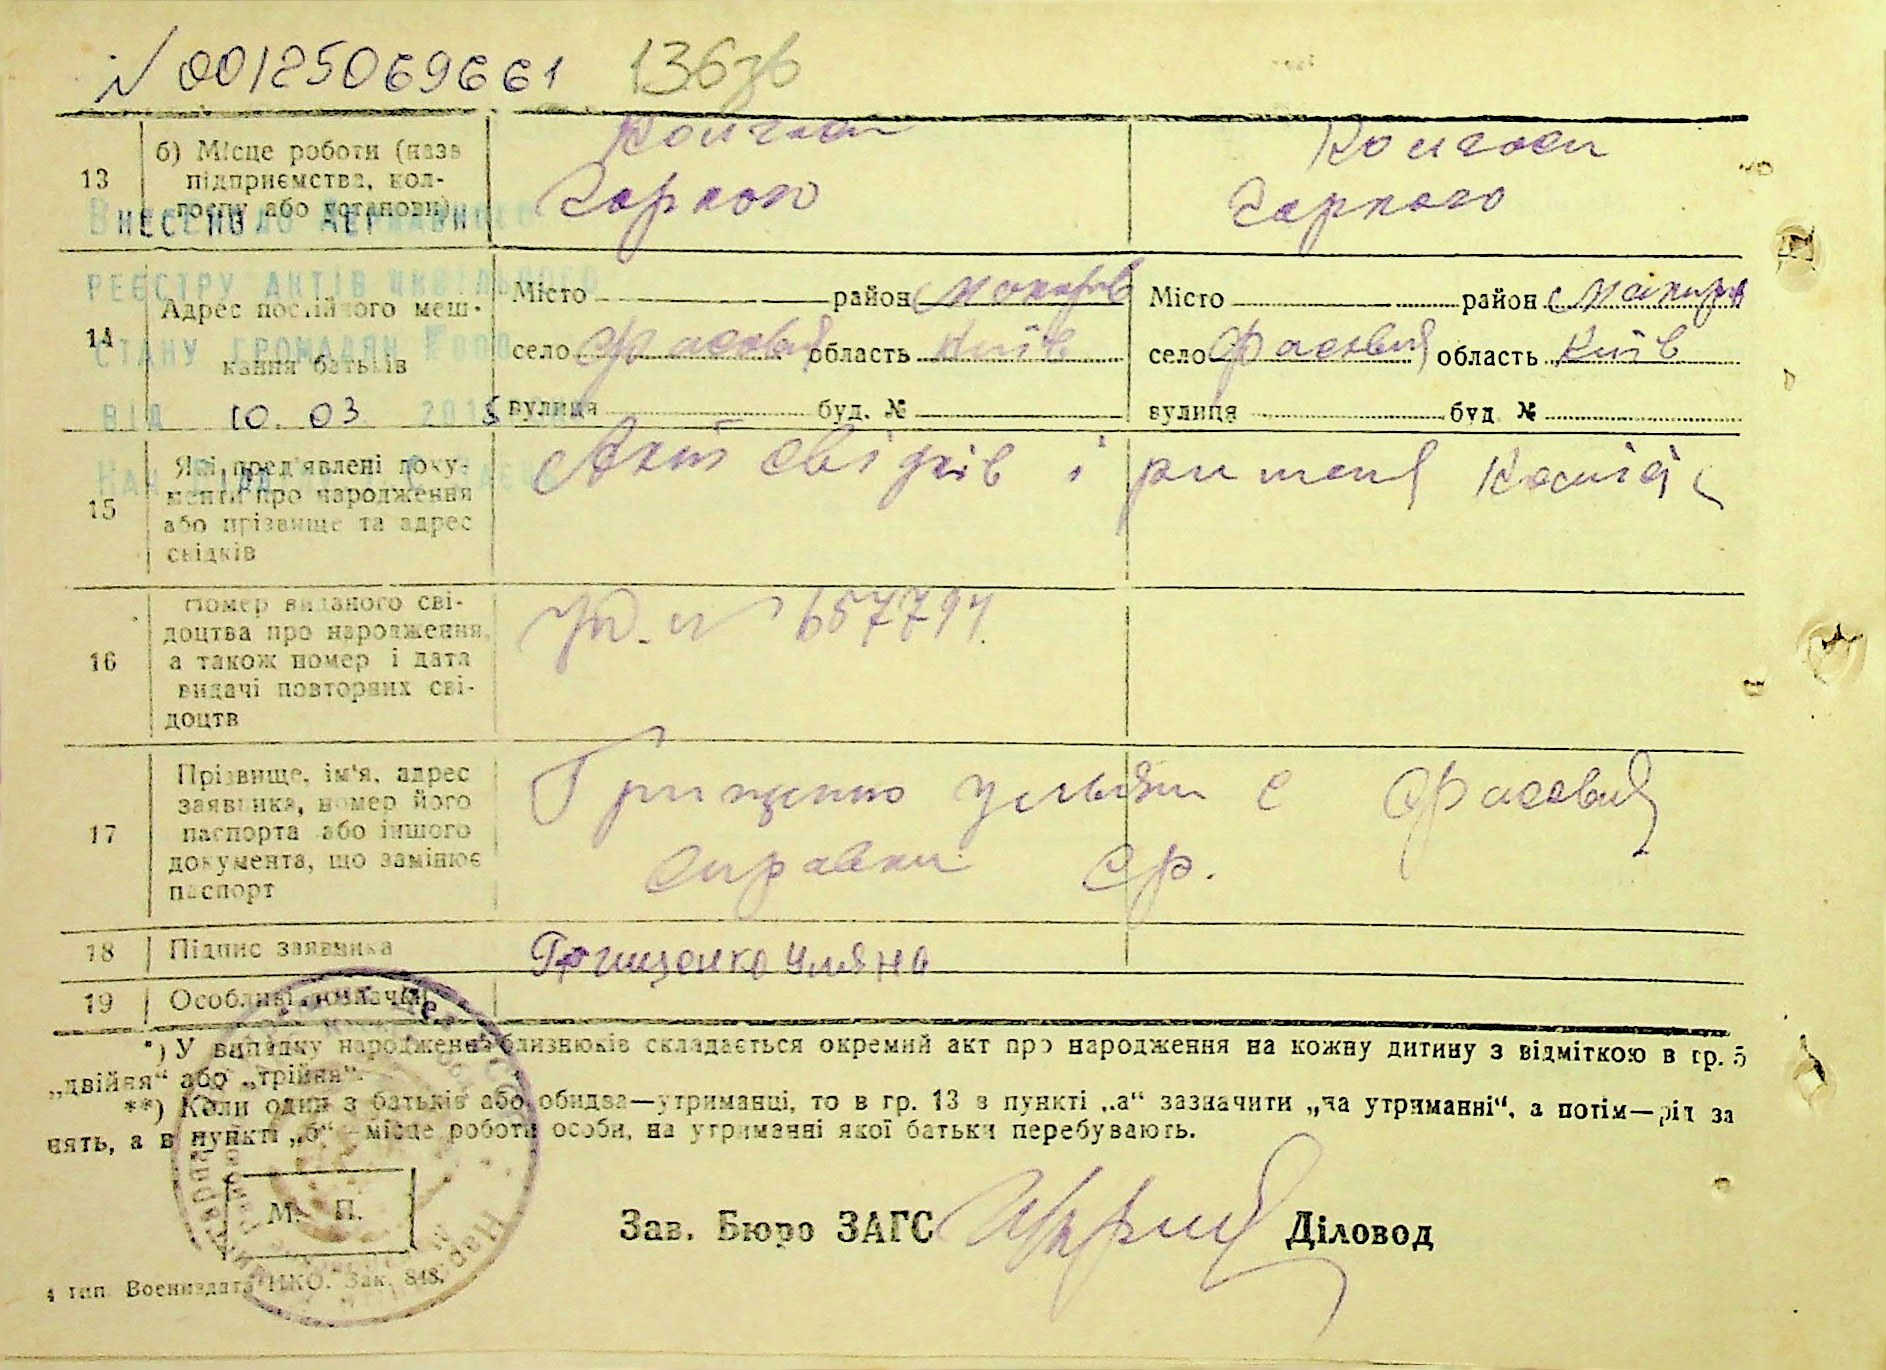 N 00125069661 136зв
13 б) Місце роботи (назв підприємства, колгоспу або установи)
Колгосп Горкого
Колгосп Горкого
Внесено до Державного
реєстру актів цивільного
стану громадян
від 10.03 201
14 Адрес постійного мешкання батьків
Місто район Макарів
село Фасовая область Київ
вулиця буд. №
Місто район Макарів
село Фасовая область Київ
вулиця буд №
15 Які пред'явлені документи про народження або прізвище та адрес свідків
Акт свідків і
16 Номер виданого свідоцтва про народження, а також номер і дата видачі повторних свідоцтв
N 657794
17 Прізвище, ім'я, адрес заявника, номер його паспорта або іншого документа, що замінює паспорт
Грищенко с Фасовая
справки ср.
18 Підпис заявника
Грищенко Уляна
19 Особливі позначки
*) У випадку народження близнюків складається окремий акт про народження на кожну дитину з відміткою в гр. 5
„двійня“ або „трійня“.
**) Коли один з батьків або обидва—утриманці, то в гр. 13 в пункті „а“ зазначити „на утриманні“, а потім—рід за
нять, а в пункті „б“—місце роботи особи, на утриманні якої батьки перебувають.
М. П.
Зав. Бюро ЗАГС Діловод
4 тип. Воениздата НКО. Зак. 848.